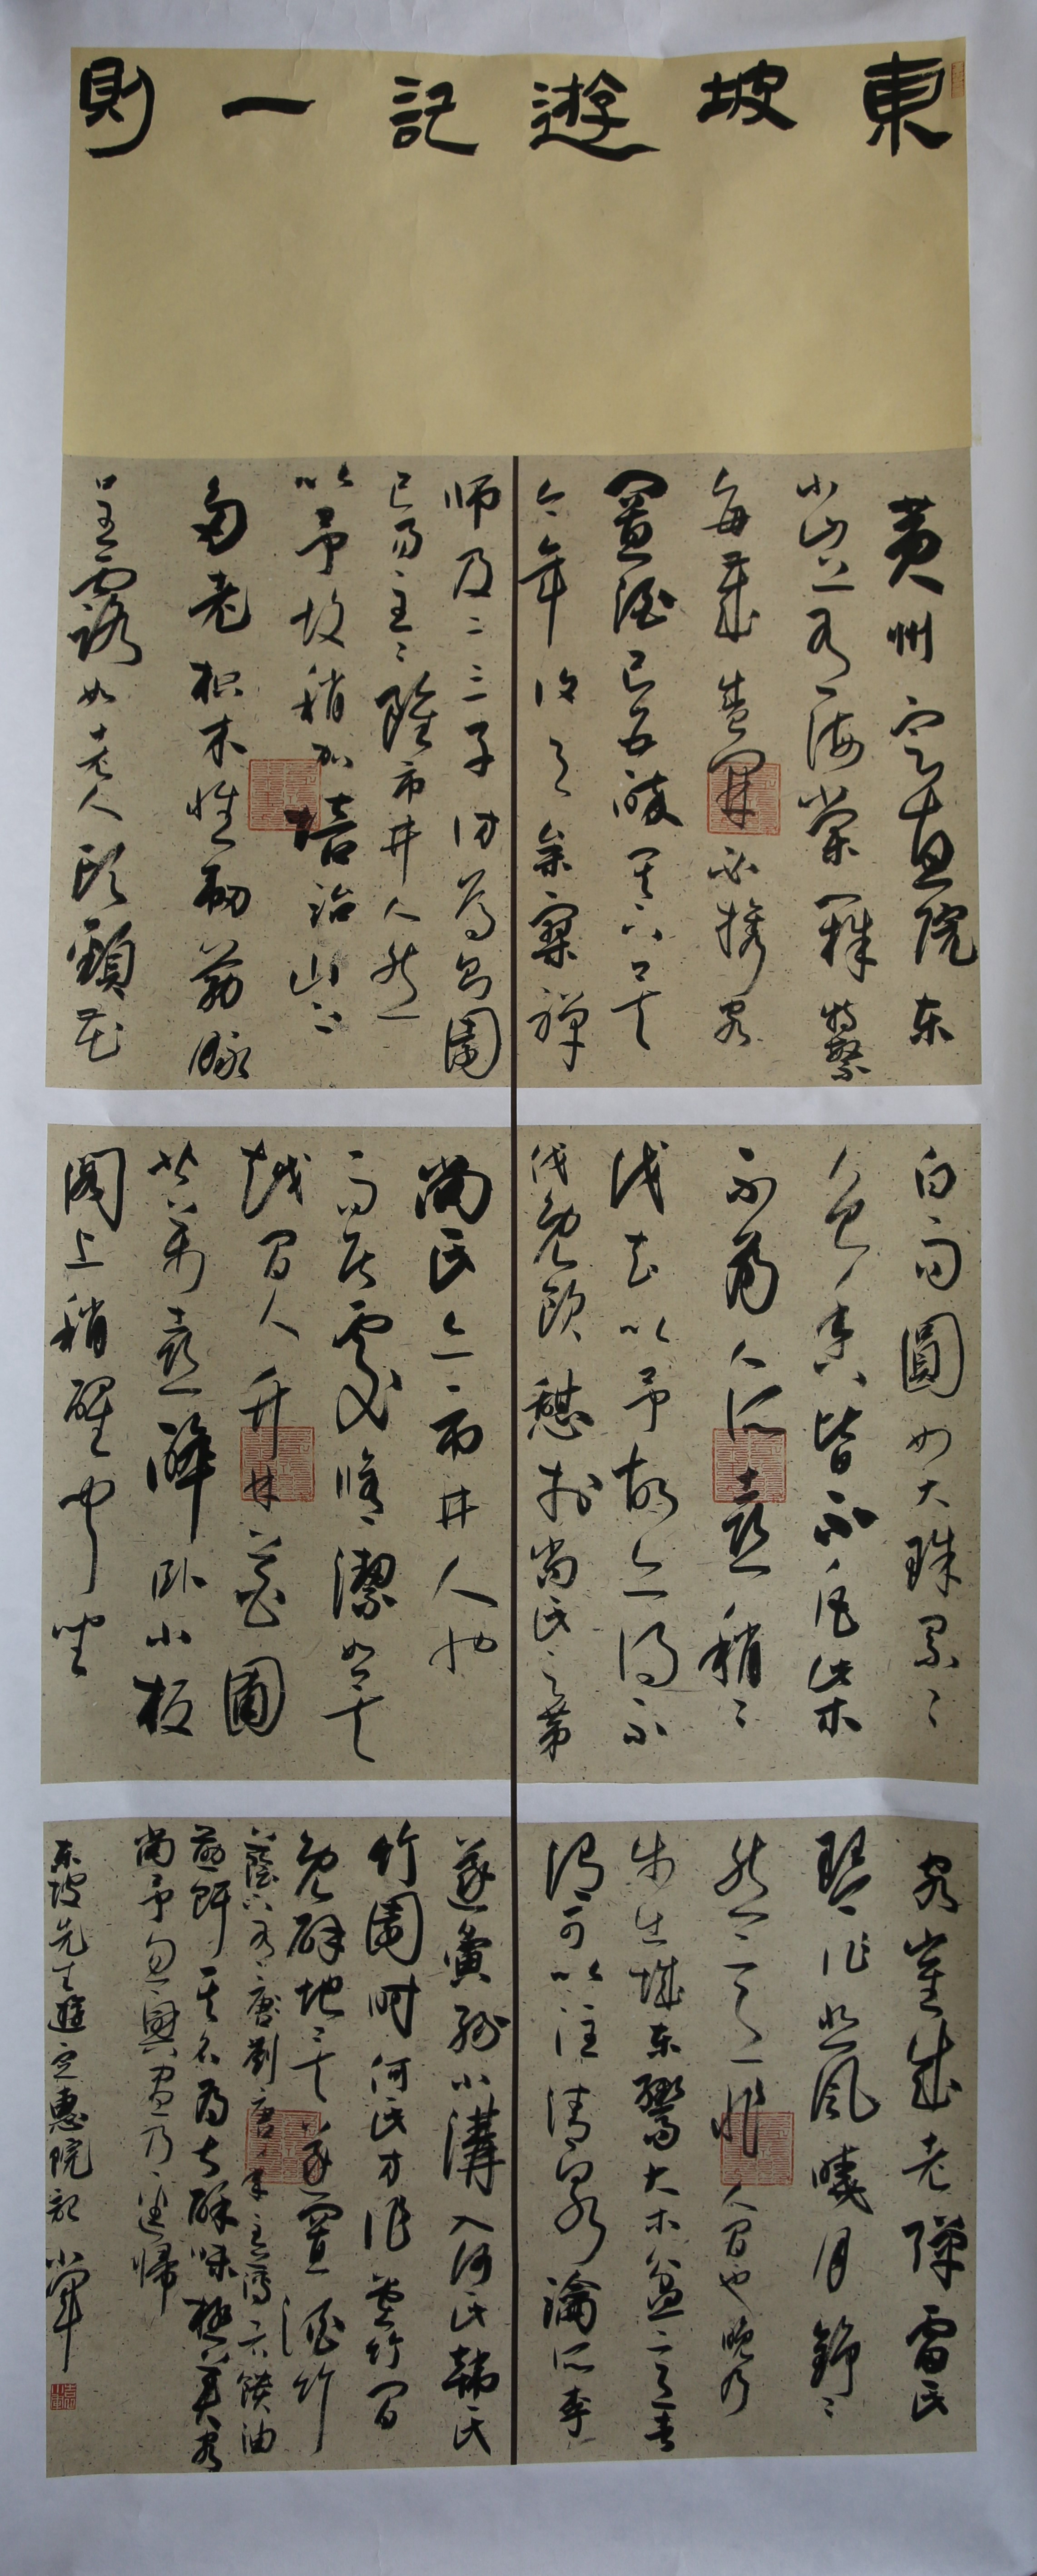 東坡遊記一則
黄州定惠院东
小山上有海棠一株特繁
每岁盛開必携客
置酒已五醉其下矣
今年復与参寥禅
师及二三子访焉則園
已易主主雖市井人然
以予故稍加培治山上
多老枳木性韧筋脉
呈露如老人頭頸花
白而圓如大珠累累
色香皆不凡此木
不為人所喜稍稍
伐去以予故亦得不
伐既飲憩於尚氏之第
尚氏亦市井人也
而居處修潔如吴
越間人竹林花圃
皆可喜醉卧小板
阁上稍醒聞坐
客崔成老弹雷氏
琴作悲風曉月錚錚
然意非人間也晚乃
步出城东鬻大木盆意者
謂可以注清泉瀹瓜李
遂夤緣小溝入何氏韩氏
竹園時何氏方作堂竹間
既辟地矣遂置酒竹
蔭下有唐劉唐年主簿者饋油
煎餌其名為甚酥味極美客
尚予忽興盡乃逕歸
东坡先生遊定惠院記 小军